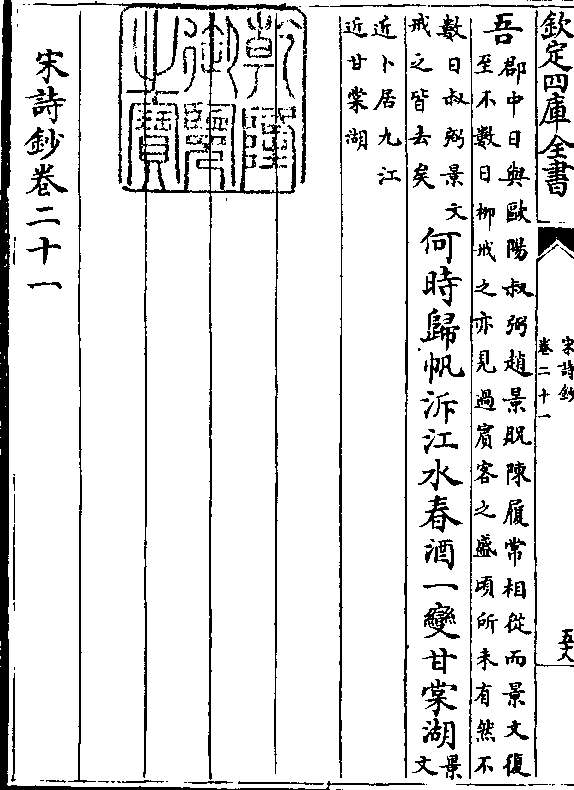 欽定四庫全書
宋詩鈔
卷二十一
吾
郡中日與歐陽叔弼趙景貺陳履常相從而景文復
至不數日柳戒之亦見過賓客之盛頃所未有然不
數日叔弼景文
戒之皆去矣
何時歸帆泝江水春酒一變甘棠湖
景
文
近卜居九江
近甘棠湖
乾隆
御覽
之寶
宋詩鈔卷二十一